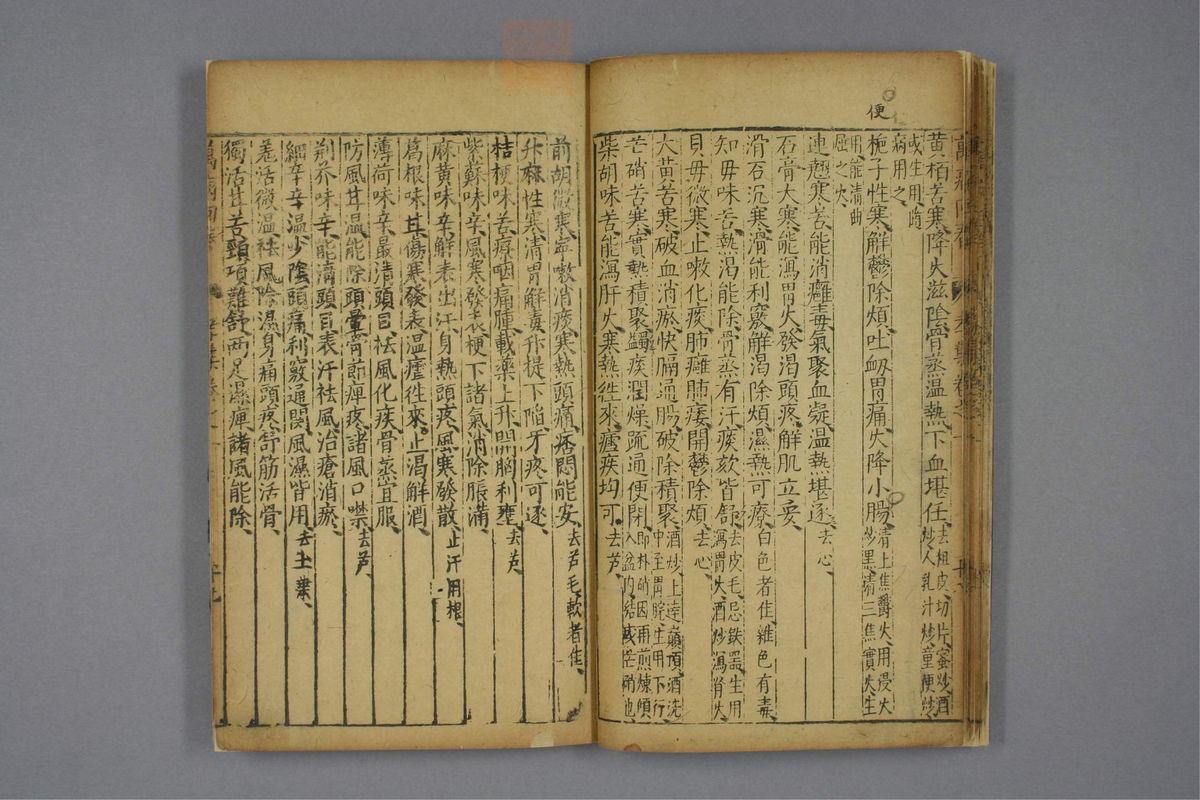 便
黄栢苦寒降火滋陰骨蒸温熱下血堪任去粗皮切片蜜炒酒炒人乳汁炒童便炒
或生用随病用之
梔子性寒解鬱除煩吐衂胃痛火降小腸清上焦鬱火用慢火炒黑清三焦實火生
用能清曲屈之火
連翹寒苦能消癰毒氣聚血凝温熱堪逐去心
石膏大寒能瀉胃火發渇頭疼解肌立妥
滑石沉寒滑能利竅解渇除煩濕熱可療白色者佳雜色有毒
知毋味苦熱渇能除骨蒸有汗痰欬皆舒去皮毛忌鉄器生用瀉胃火酒炒瀉腎火
貝毋微寒止嗽化痰肺癰肺痿開鬱除煩去心
大黄苦寒破血消瘀快膈通腸破除積聚酒炒上達巔頂酒洗中至胃脘生用下行
芒硝苦寒實熱積聚蠲痰潤燥疏通便閉即朴硝因雨煎煉傾入盆内結成芒硝也
柴胡味苦能瀉肝火寒熱徃來瘧疾均可去芦
前胡微寒寧嗽消痰寒熱頭痛痞悶能安去芦毛軟者佳
升麻性寒清胃解毒升提下陥牙疼可逐
桔梗味苦療咽痛腫載藥上升開胸利壅去芦
紫蘇味辛風寒發表梗下諸氣消除脹滿
麻黄味辛解表出汗身熱頭疼風寒發散止汗用根
葛根味甘傷寒發表温瘧徃來止渇解酒
薄荷味辛最清頭目祛風化痰骨蒸宜服
防風甘温能除頭暈骨節痺疼諸風口噤去芦
荆芥味辛能清頭目表汗祛風治瘡消瘀
細辛辛温少陰頭痛利竅通関風濕皆用去土葉
羗活微温祛風除濕身痛頭疼舒筋活骨
獨活甘苦頸項難舒两足濕痺諸風能除